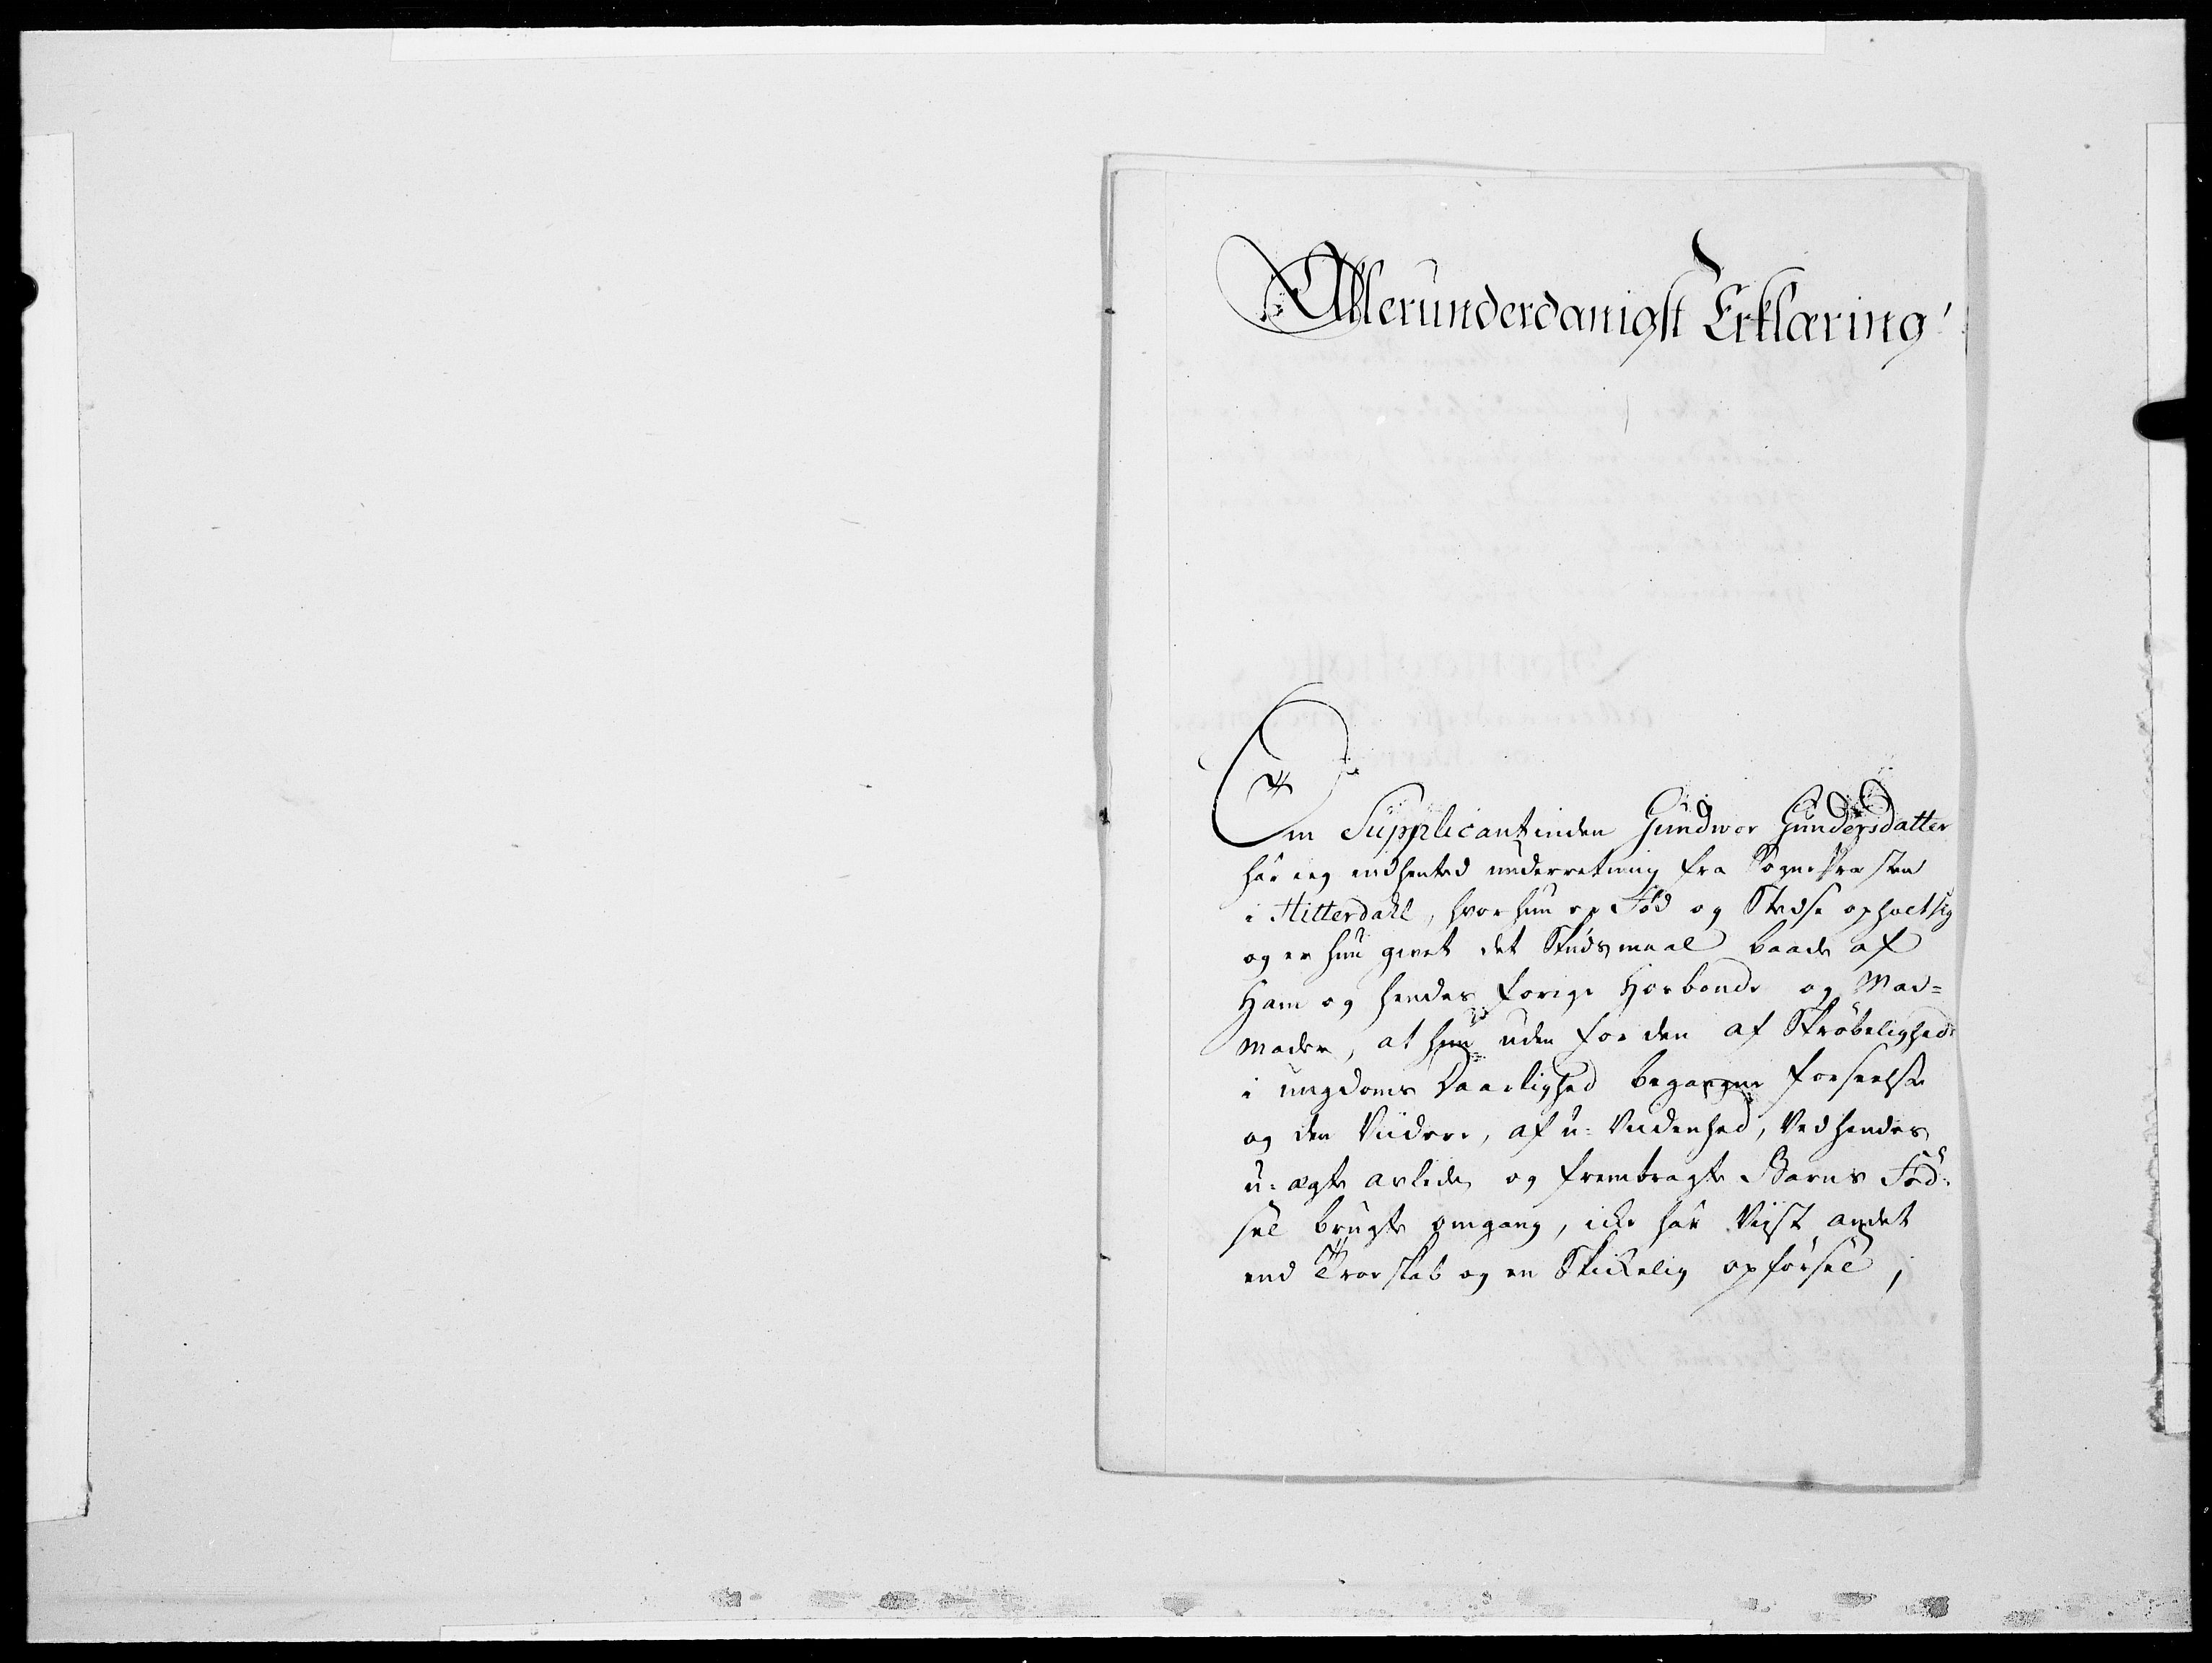 Allerunderdanigst Erklæring!
Om Supplicantinden Gundwor Gundersdatter
har ieg indhentet underretning fra Sogne Præsten
i Hitterdahl, hvor hun er Fød og Stedse opholt sig
og er hun givet det Skudsmaal baade af
Ham og hendes forige Hosbonde og Mad=
moder, at hun uden for den af Skrøbelighed
i ungdoms Daarlighed begangne forseelse
og den Viidere, af u-Viidenhed, Ved hendes
u-ægte avlede og frembragte Barns Fød=
sel brugte omgang, icke har Viist andet
end Troeskab og en Skickelig opførsel,